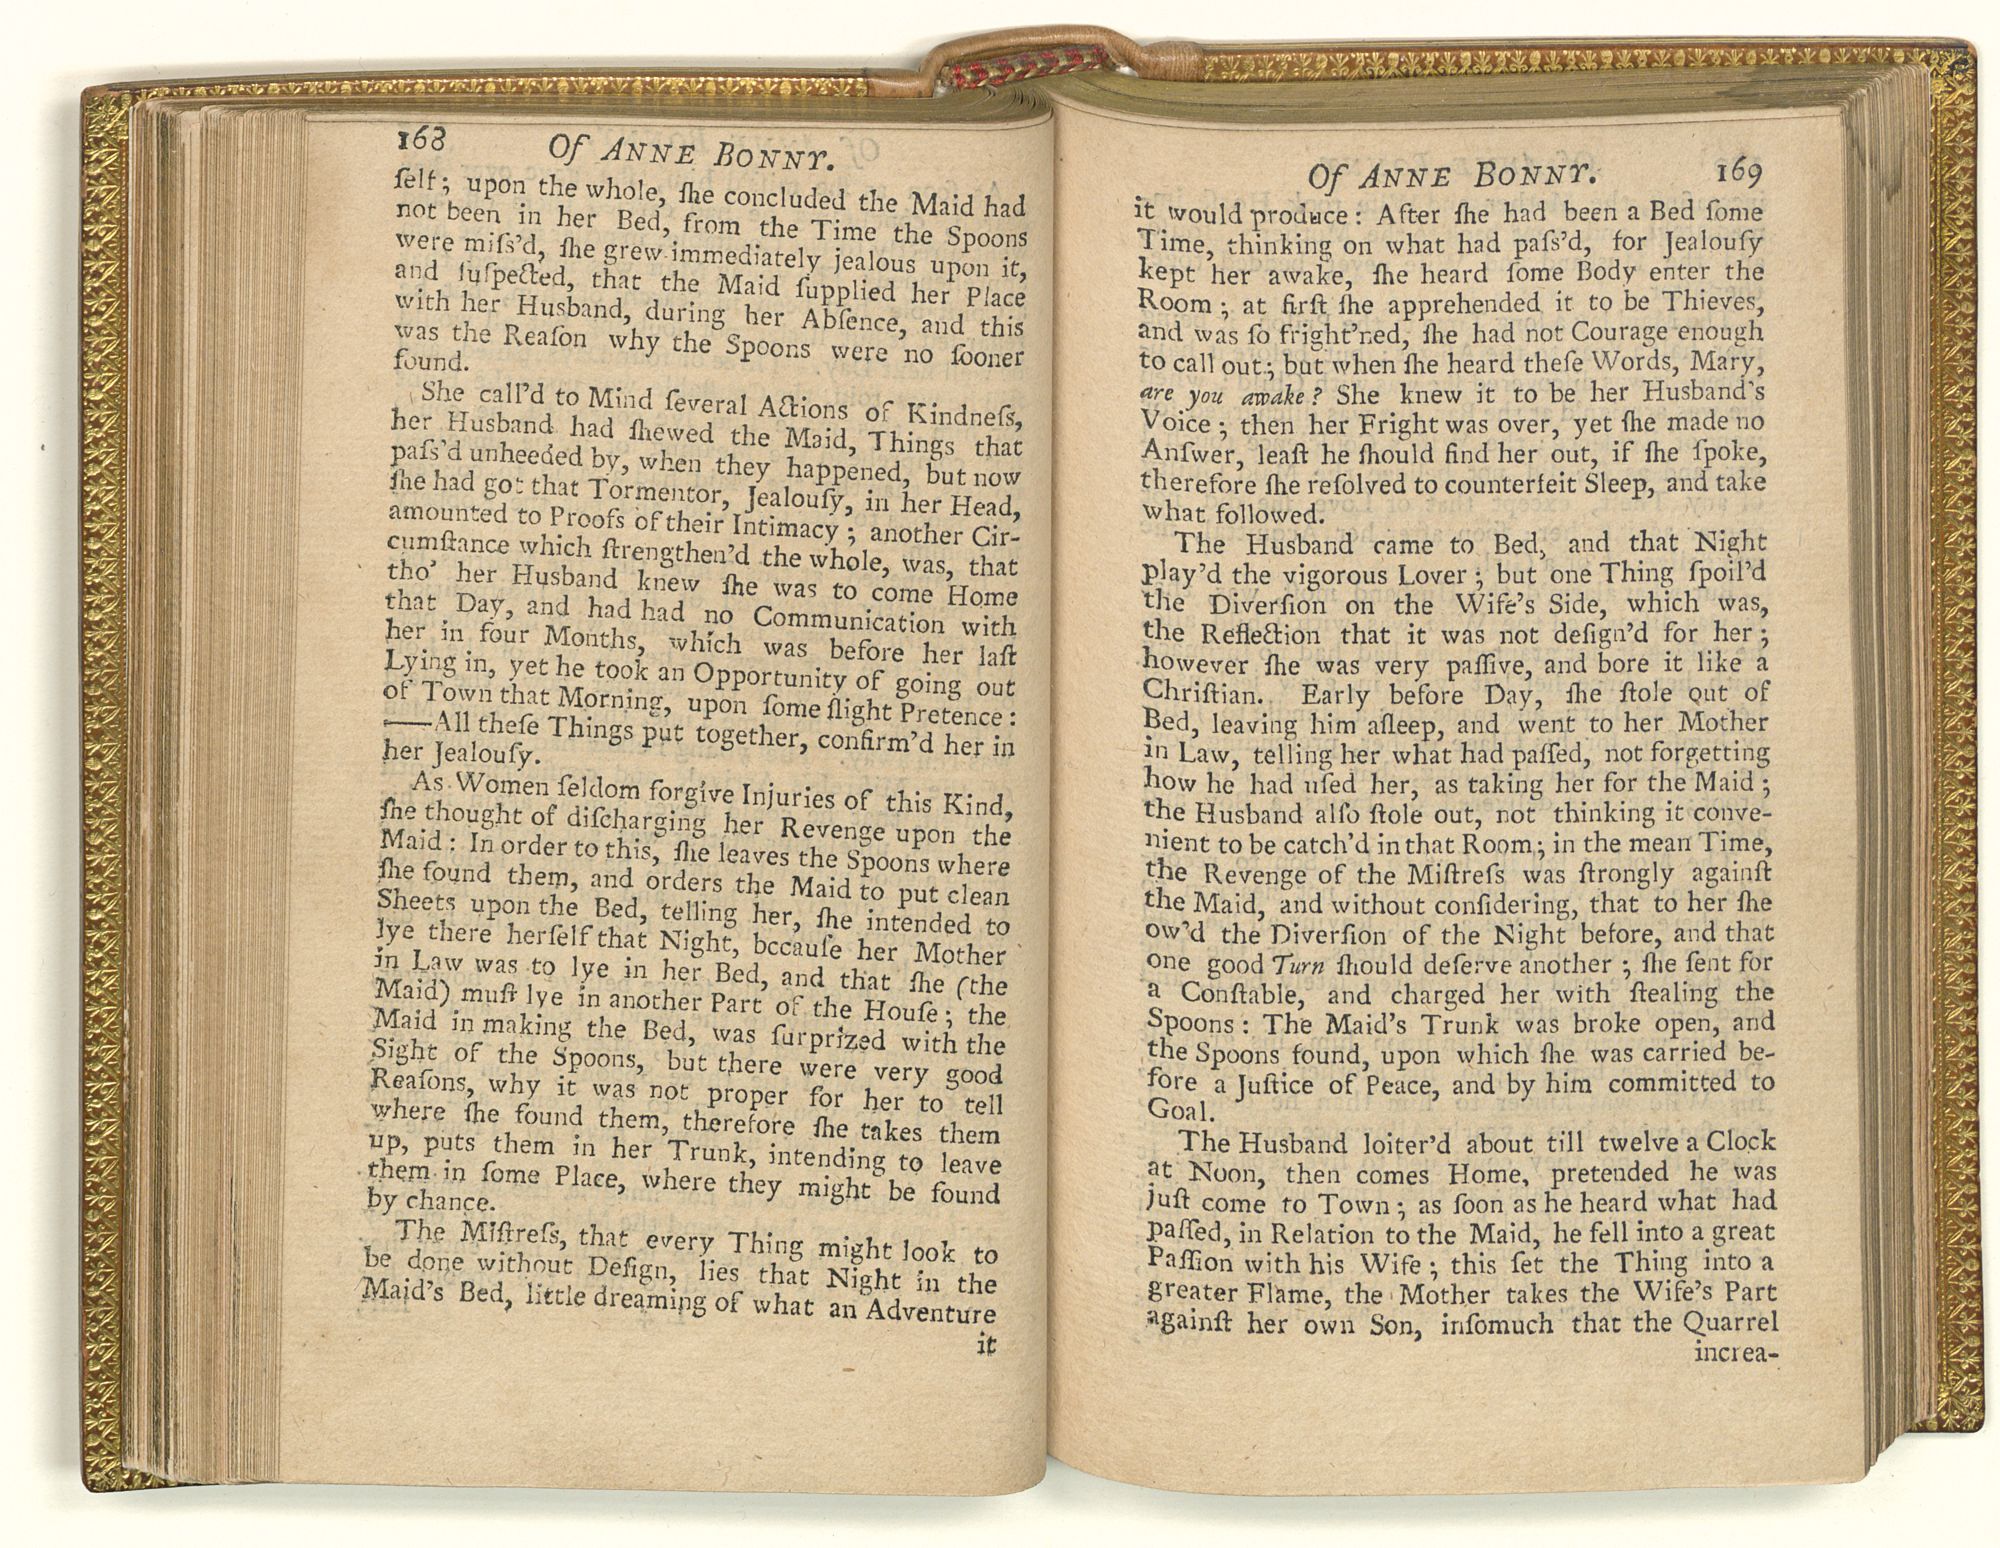 168 Of ANNE BONNY.
ſelf; upon the whole, ſhe concluded the Maid had
not been in her Bed, from the Time the Spoons
were miſs'd, ſhe grew immediately jealous upon it,
and ſuſpected, that the Maid ſupplied her Place
with her Husband, during her Abſence, and this
was the Reaſon why the Spoons were no ſooner
found.
She call'd to Mind ſeveral Actions of Kindneſs,
her Husband had ſhewed the Maid, Things that
paſs'd unheeded by, when they happened, but now
ſhe had got that Tormentor, Jealouſy, in her Head,
amounted to Proofs of their Intimacy; another Cir-
cumſtance which ſtrengthen'd the whole, was, that
tho' her Husband knew ſhe was to come Home
that Day, and had had no Communication with
her in four Months, which was before her laſt
Lying in, yet he took an Opportunity of going out
of Town that Morning, upon ſome ſlight Pretence:
——All theſe Things put together, confirm'd her in
her Jealouſy.
As Women ſeldom forgive Injuries of this Kind,
ſhe thought of diſcharging her Revenge upon the
Maid: In order to this, ſhe leaves the Spoons where
ſhe found them, and orders the Maid to put clean
Sheets upon the Bed, telling her, ſhe intended to
lye there herſelf that Night, becauſe her Mother
in Law was to lye in her Bed, and that ſhe (the
Maid) muſt lye in another Part of the Houſe; the
Maid in making the Bed, was ſurprized with the
Sight of the Spoons, but there were very good
Reaſons, why it was not proper for her to tell
where ſhe found them, therefore ſhe takes them
up, puts them in her Trunk, intending to leave
them in ſome Place, where they might be found
by chance.
The Miſtreſs, that every Thing might look to
be done without Deſign, lies that Night in the
Maid's Bed, little dreaming of what an Adventure
it
Of ANNE BONNY. 169
it would produce: After ſhe had been a Bed ſome
Time, thinking on what had paſs'd, for Jealouſy
kept her awake, ſhe heard ſome Body enter the
Room; at firſt ſhe apprehended it to be Thieves,
and was ſo fright'ned, ſhe had not Courage enough
to call out; but when ſhe heard theſe Words, Mary,
are you awake? She knew it to be her Husband's
Voice; then her Fright was over, yet ſhe made no
Anſwer, leaſt he ſhould find her out, if ſhe ſpoke,
therefore ſhe reſolved to counterfeit Sleep, and take
what followed.
The Husband came to Bed, and that Night
play'd the vigorous Lover; but one Thing ſpoil'd
the Diverſion on the Wife's Side, which was,
the Reflection that it was not deſign'd for her;
however ſhe was very paſſive, and bore it like a
Chriſtian. Early before Day, ſhe ſtole out of
Bed, leaving him aſleep, and went to her Mother
in Law, telling her what had paſſed, not forgetting
how he had uſed her, as taking her for the Maid;
the Husband alſo ſtole out, not thinking it conve-
nient to be catch'd in that Room; in the mean Time,
the Revenge of the Miſtreſs was ſtrongly againſt
the Maid, and without conſidering, that to her ſhe
ow'd the Diverſion of the Night before, and that
one good Turn ſhould deſerve another; ſhe ſent for
a Conſtable, and charged her with ſtealing the
Spoons: The Maid's Trunk was broke open, and
the Spoons found, upon which ſhe was carried be-
fore a Juſtice of Peace, and by him committed to
Goal.
The Husband loiter'd about till twelve a Clock
at Noon, then comes Home, pretended he was
juſt come to Town; as ſoon as he heard what had
paſſed, in Relation to the Maid, he fell into a great
Paſſion with his Wife; this ſet the Thing into a
greater Flame, the Mother takes the Wife's Part
againſt her own Son, inſomuch that the Quarrel
increa-